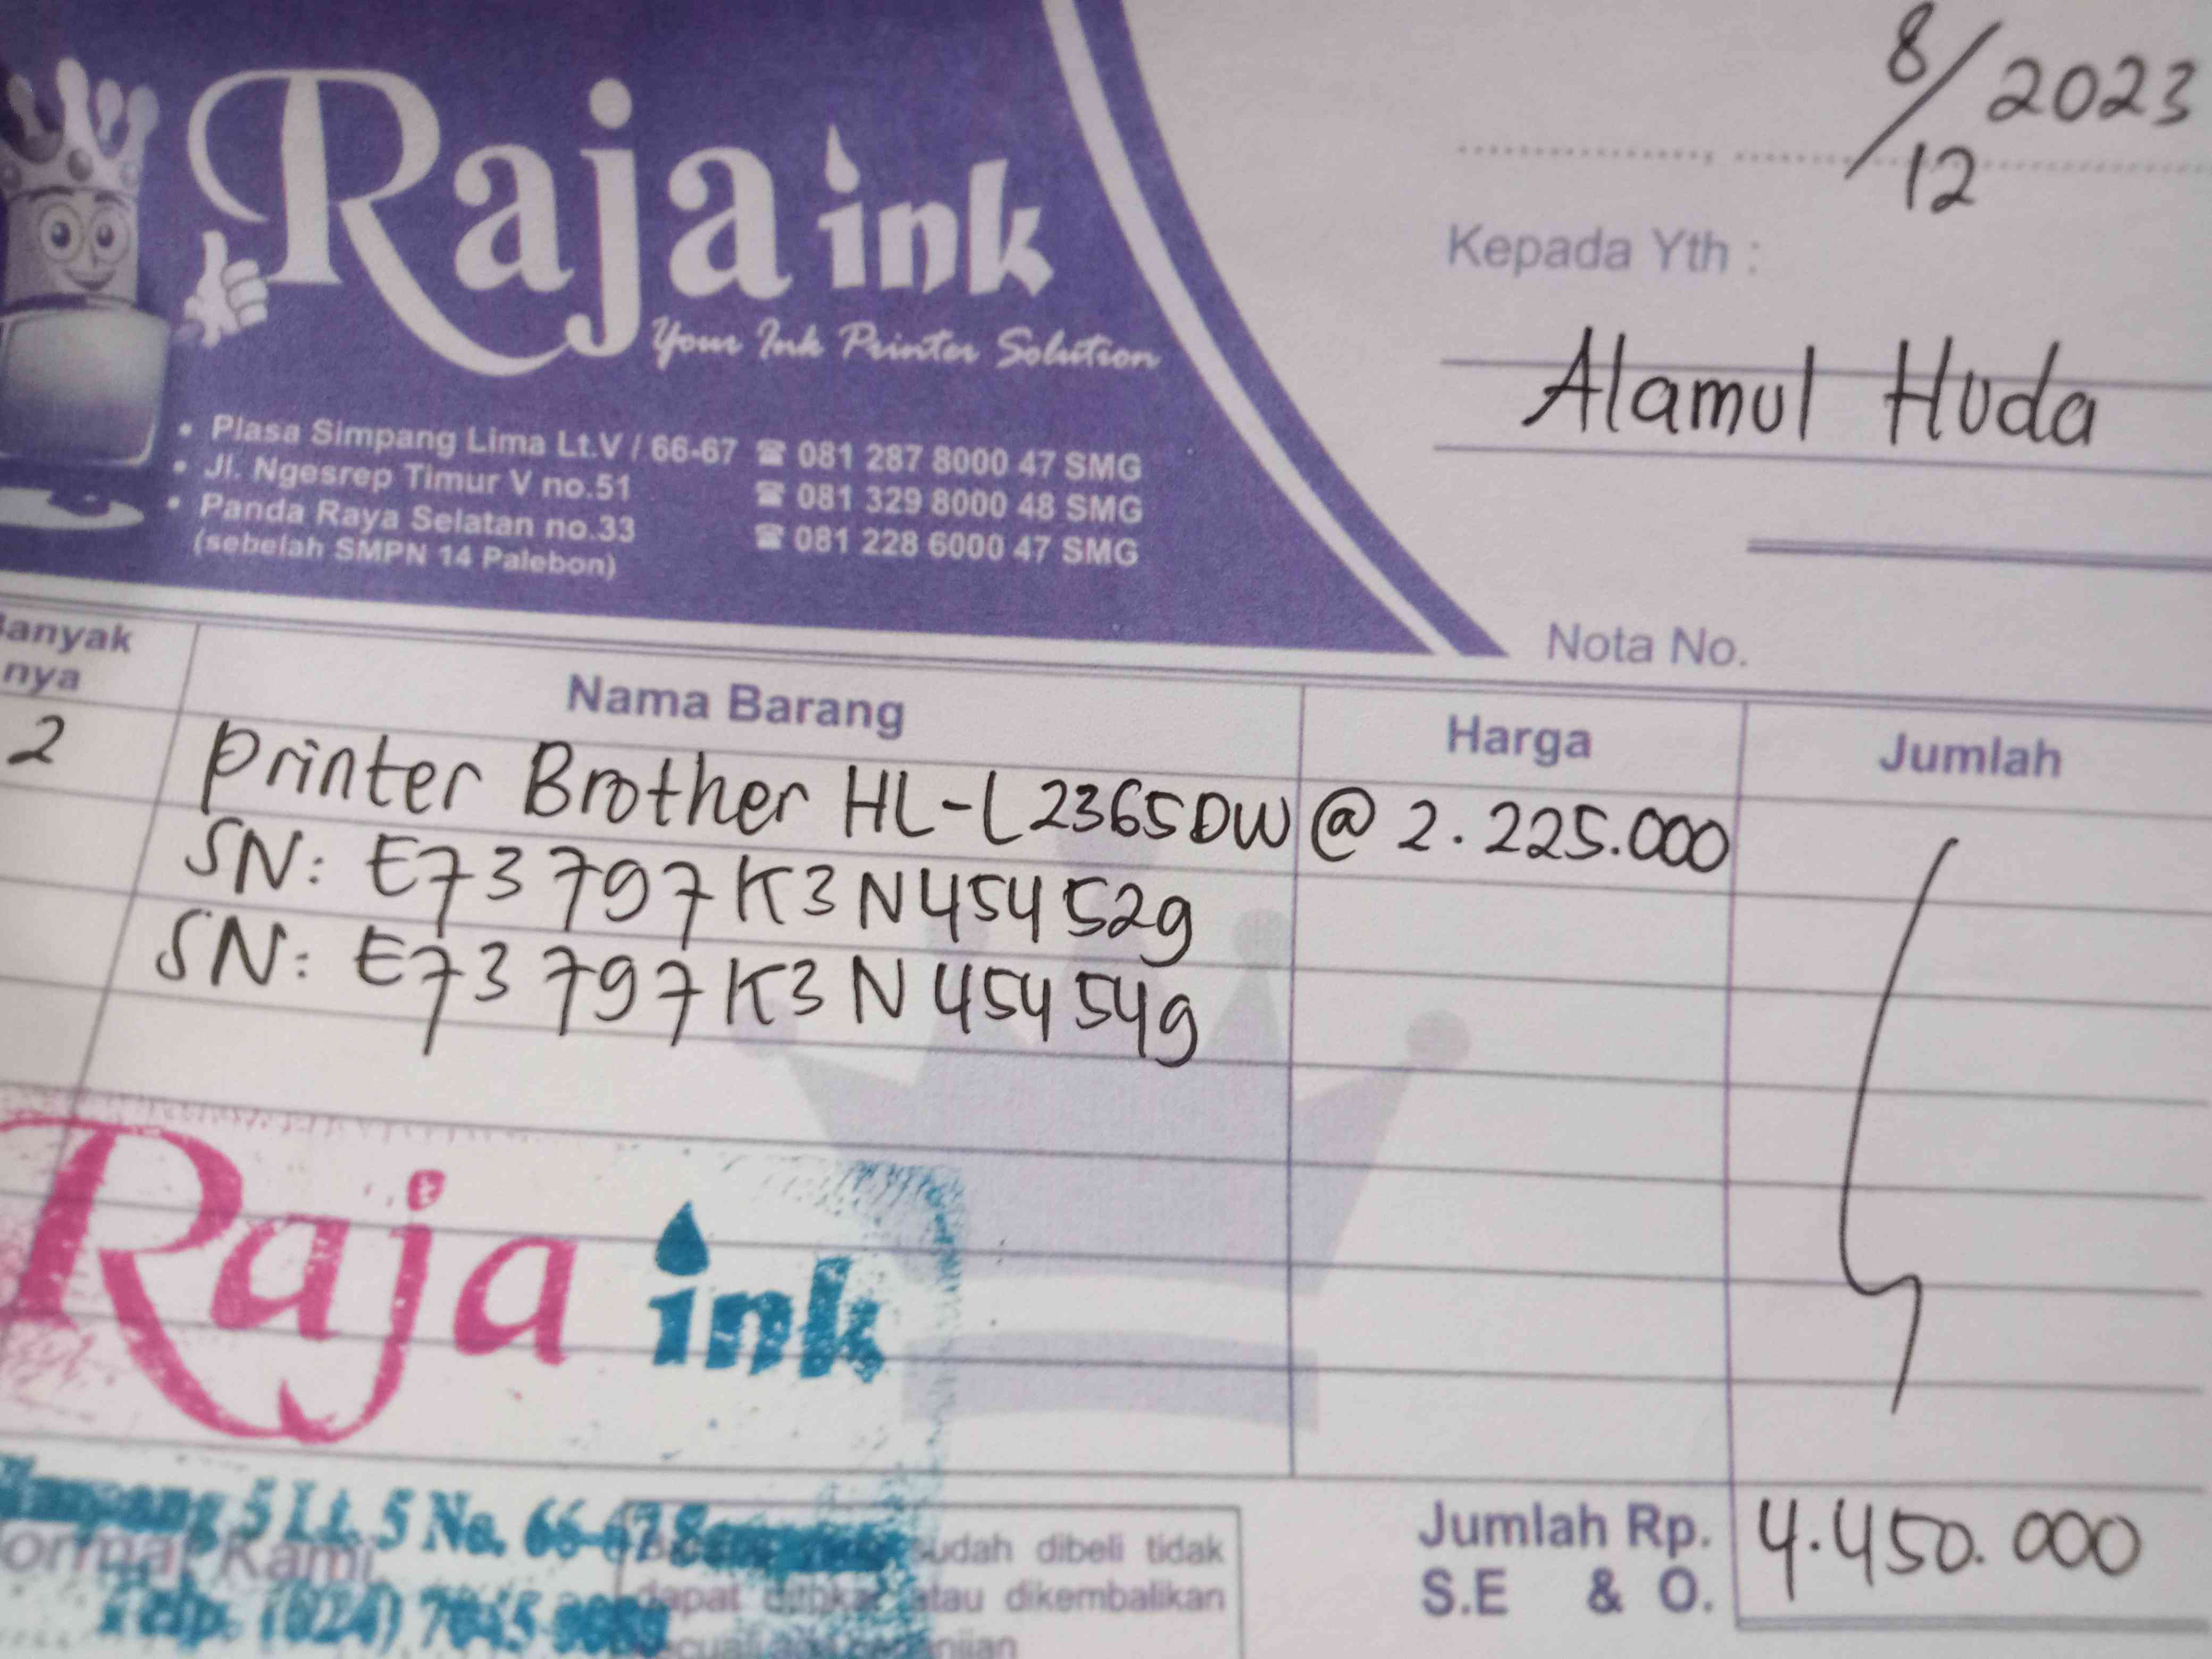 Raja ink
Your Ink Printer Solution
• Plasa Simpang Lima Lt.V / 66-67 ☎ 081 287 8000 47 SMG
• Jl. Ngesrep Timur V no.51 ☎ 081 329 8000 48 SMG
• Panda Raya Selatan no.33 ☎ 081 228 6000 47 SMG
(sebelah SMPN 14 Palebon)
8/12 2023
Kepada Yth :
Alamul Huda
Nota No.
Banyak nya Nama Barang Harga Jumlah
2 Printer Brother HL-L2365DW @ 2.225.000
SN: E73797K3N454529
SN: E73797K3N454549
Raja ink
Simpang 5 Lt. 5 No. 66-67
Telp. (024)
Kami
sudah dibeli tidak
dapat ditukar atau dikembalikan
Jumlah Rp. 4.450.000
S.E & O.